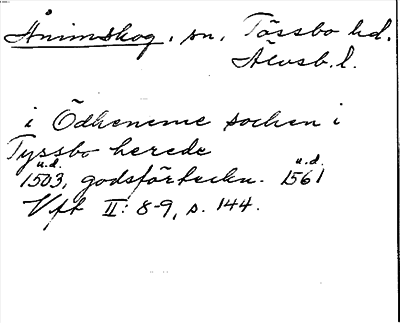 Ånimskog, sn, Tössbo hd.
Älvsb. l.
i Ödheneme sochen i
Tyssbo herede
u.d. u.d.
1503, godsförteckn. 1561
Vft II: 8-9, s. 144.